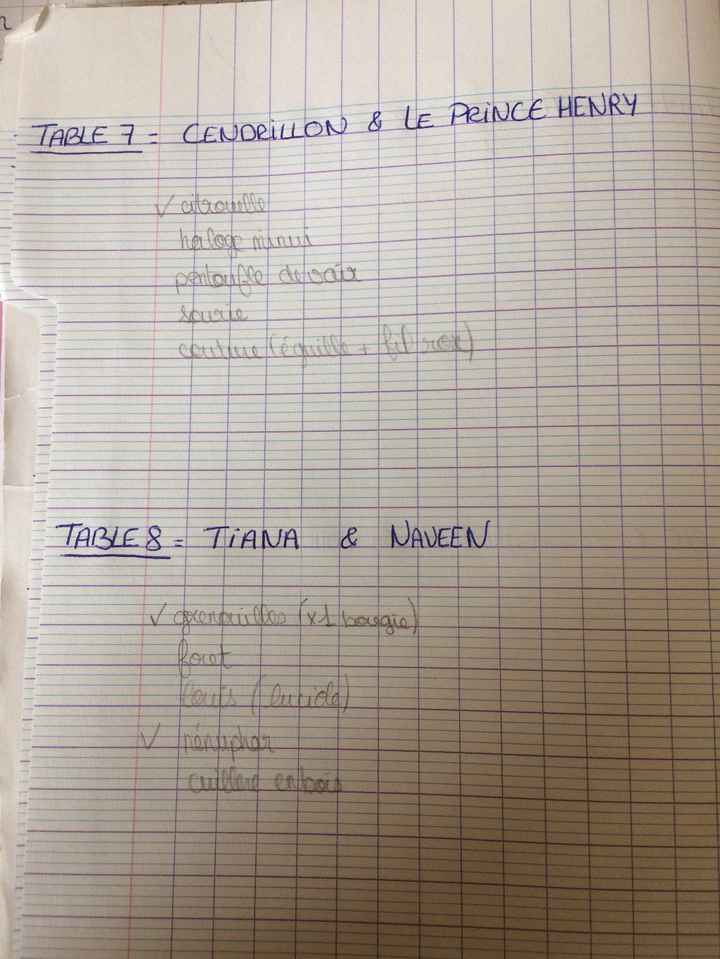 TABLE 7 = CENDRILLON & LE PRINCE HENRY
✓ citrouille
horloge minui
pantoufle de vair
souris
couture (éguille + fil rose)
TABLE 8 = TIANA & NAVEEN
✓ grenouilles (x1 bougie)
foret
(luciole)
✓ nénuphar
cuillere en bois